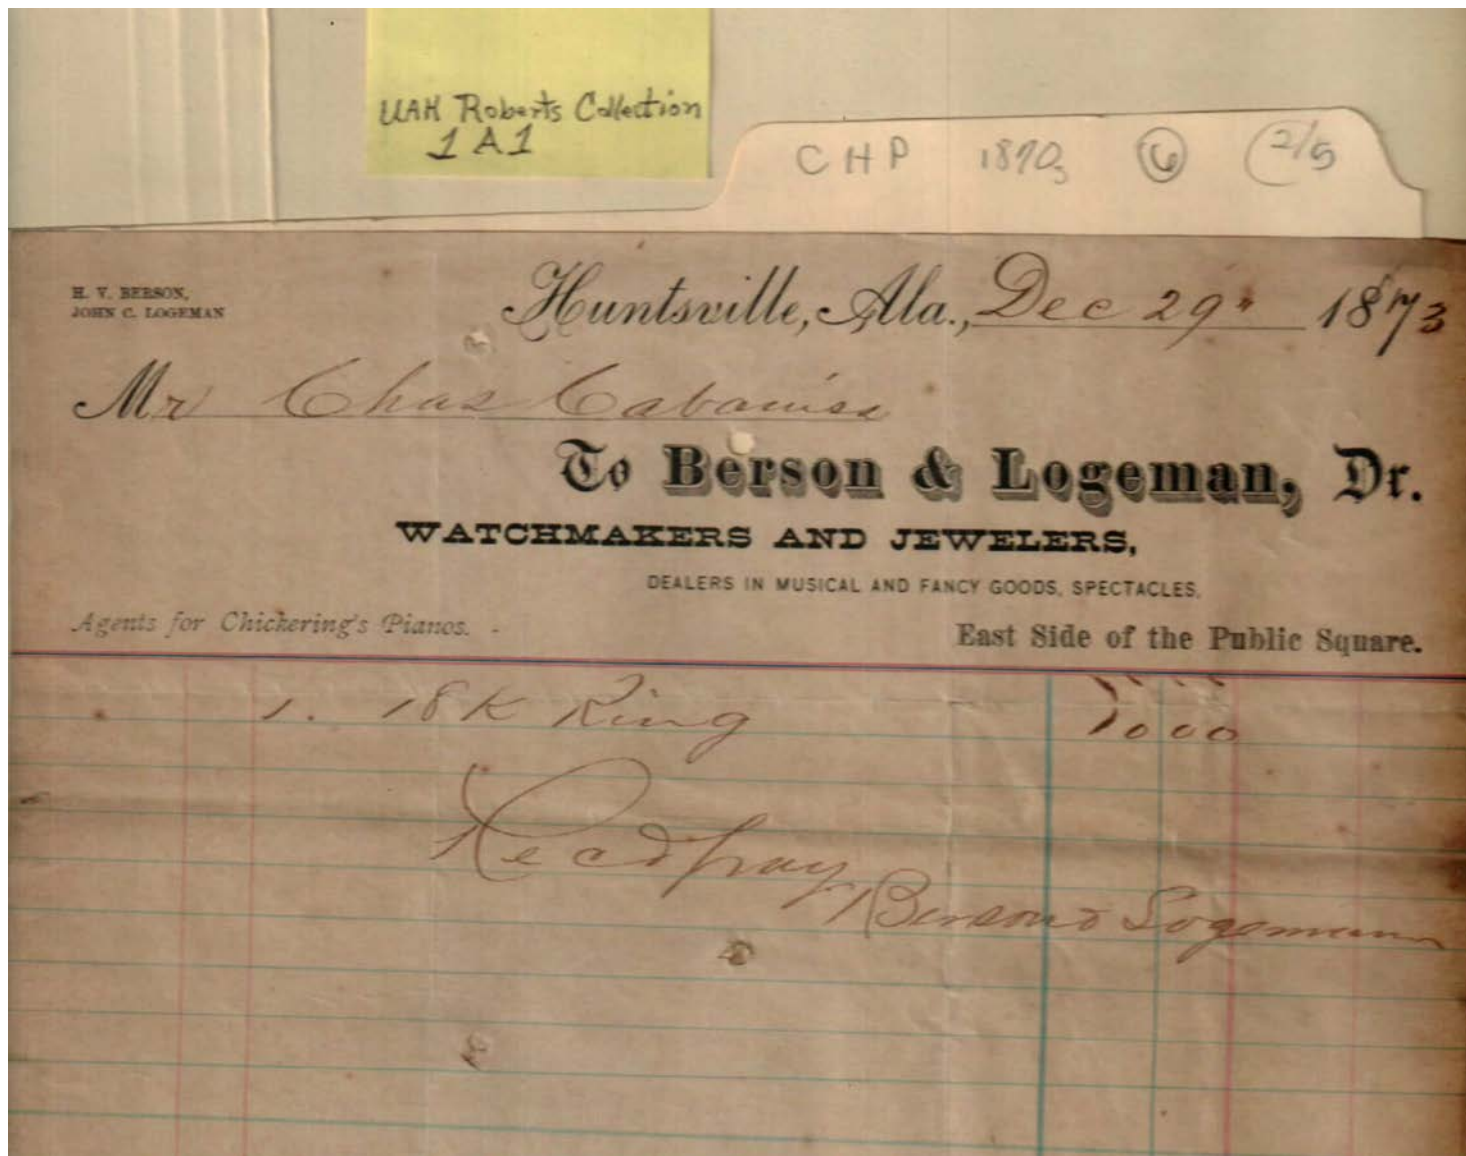 UAH Roberts Collection
1A1
CHP 1870s 6 2/5
H. V. BERSON,
JOHN C. LOGEMAN
Huntsville, Ala., Dec 29" 1873
Mr Chas Cabaniss
To Berson & Logeman, Dr.
WATCHMAKERS AND JEWELERS,
DEALERS IN MUSICAL AND FANCY GOODS, SPECTACLES,
Agents for Chickering's Pianos.
East Side of the Public Square.
1. 18K Ring 10 00
Recd pay
Berson & Logemann